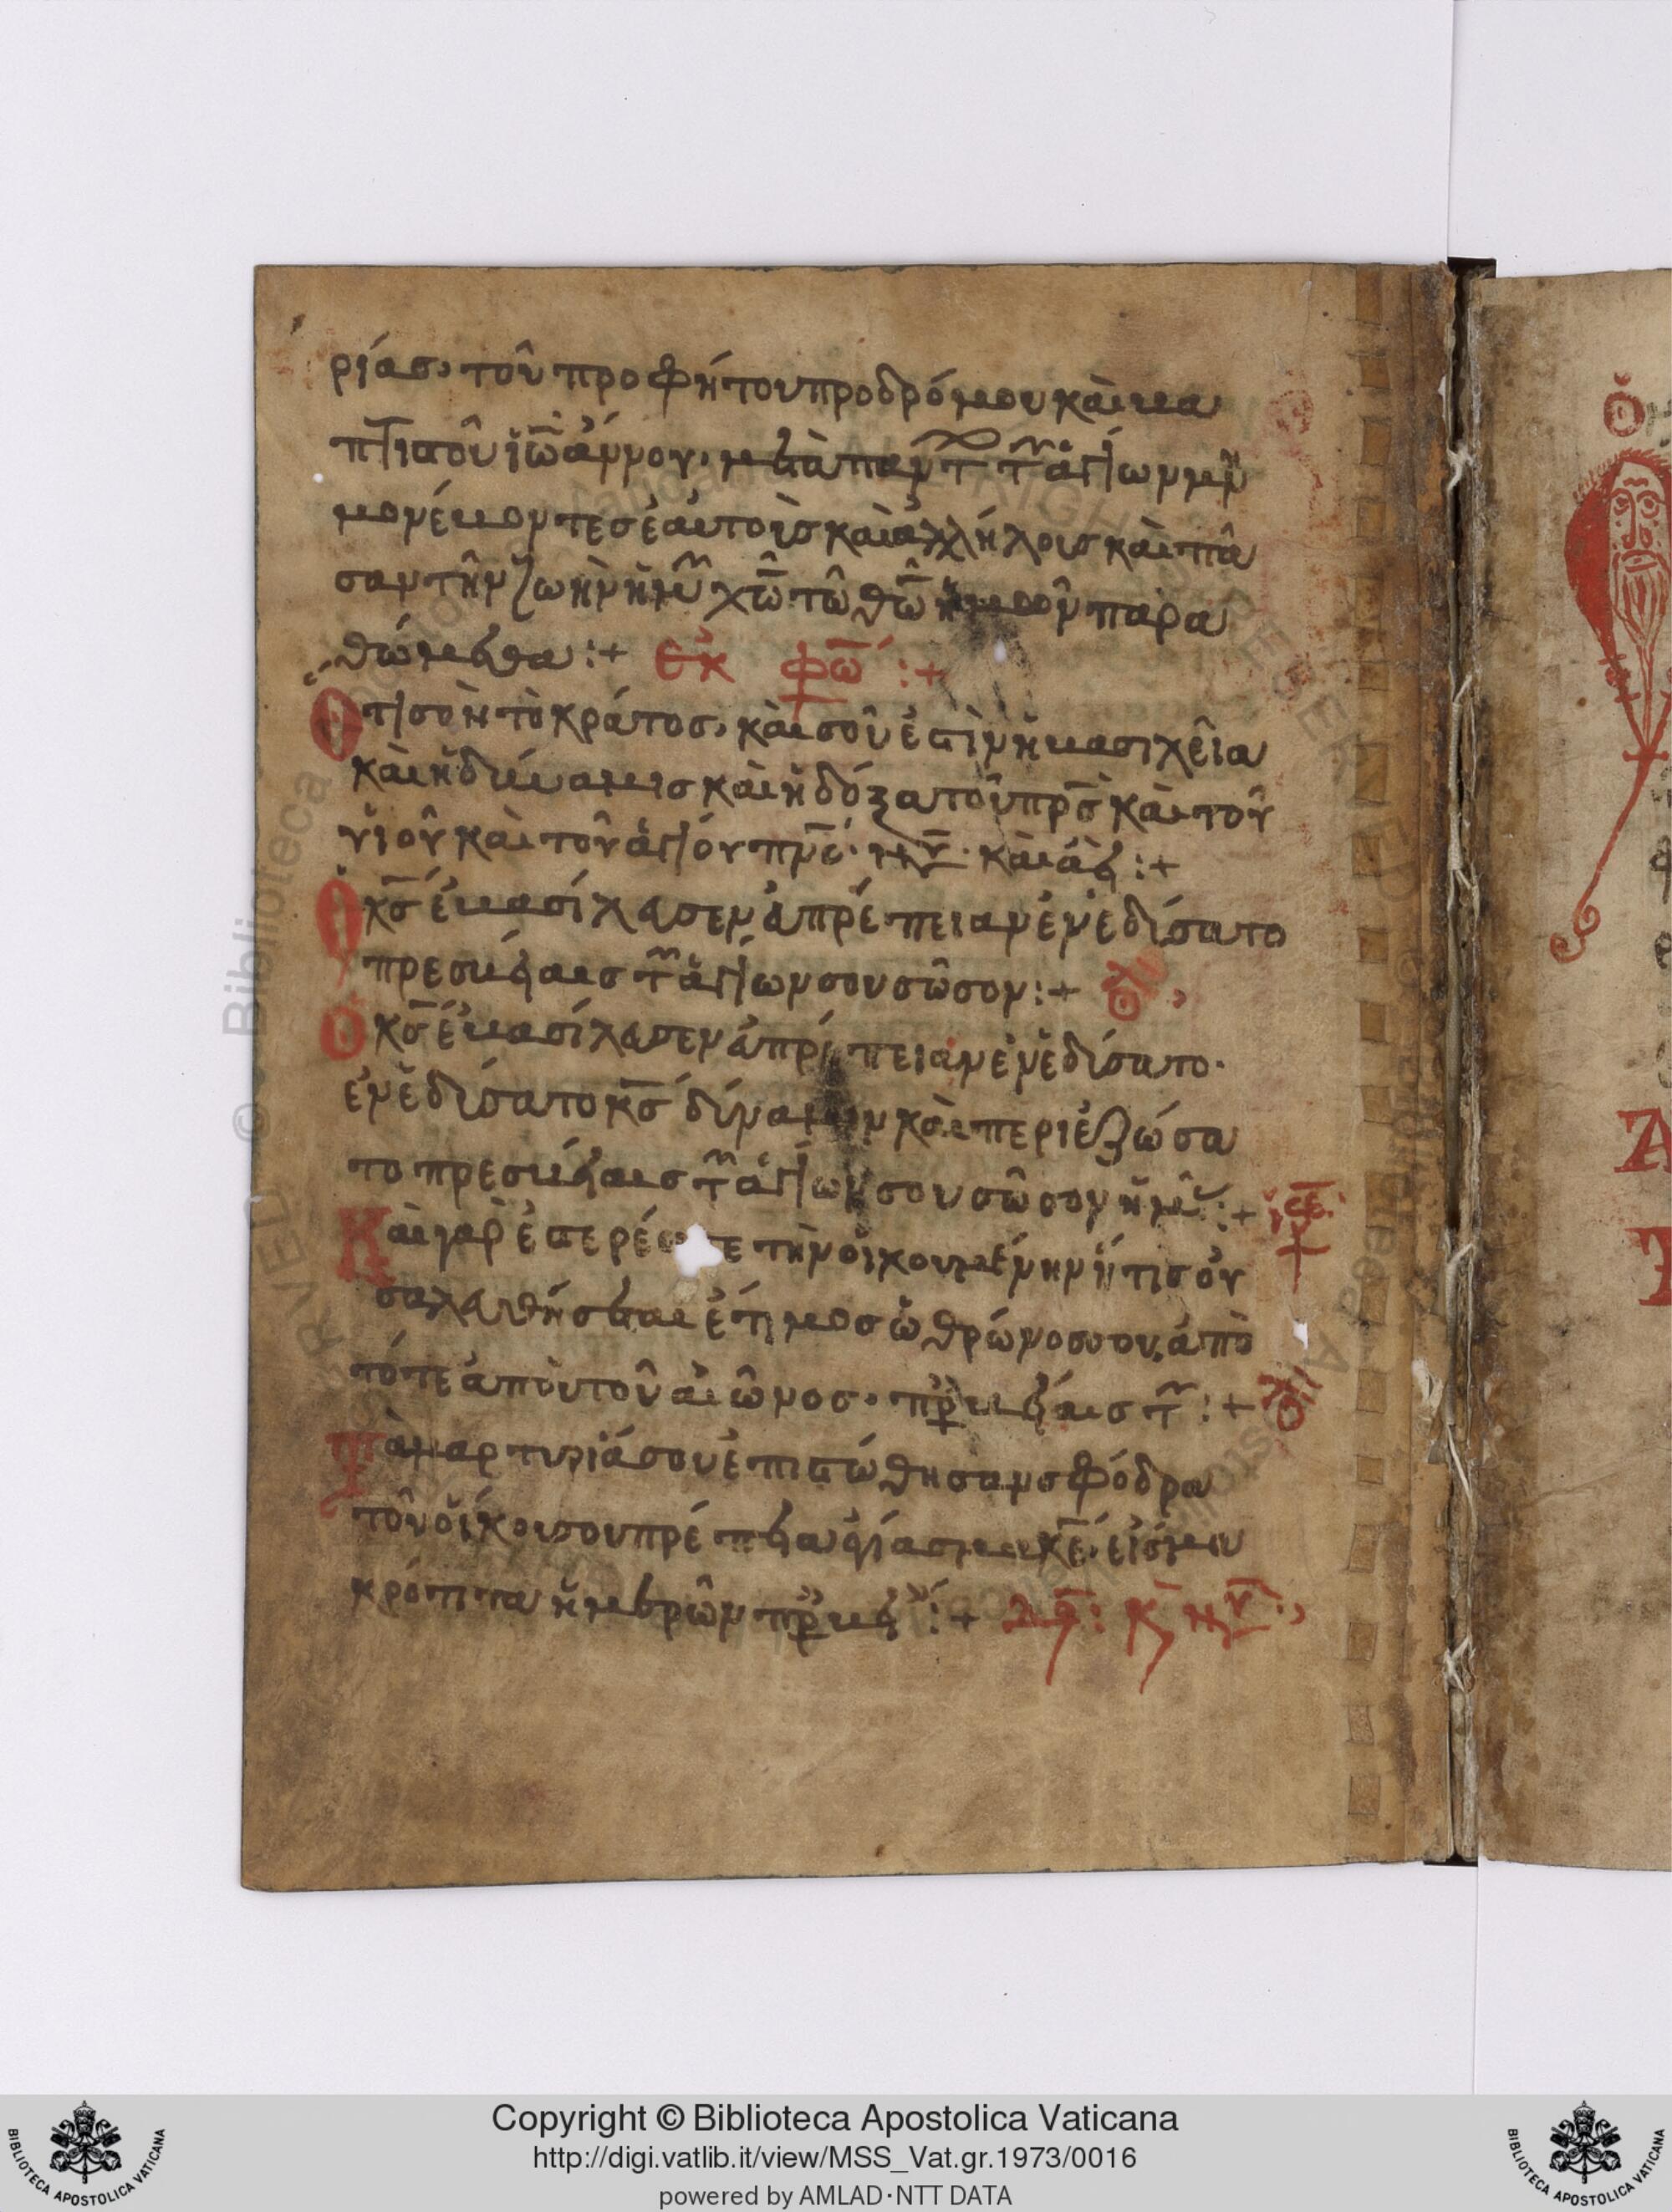 ρίας· τοῦ προφήτου προδρόμου καὶ βα
πτιστοῦ ἰω̅άννου· μετὰ παντ τ ἁγίων μν
μονέβοντες ἑαυτοὶς καὶ ἀλλήλοις καὶ πᾶ
σαν τὴν ζωὴν ἡμ χω̅ τῶ θω̅ ἡμῶν παρα
θώμεθα :+ ἐκ φω̅ :+
Ὅτι σὸν τὸ κράτος, καὶ σοῦ ἐστὶν ἡ βασιλεῖα
καὶ ἡ δύναμις καὶ ἡ δόξα τοῦ πρς̅ καὶ τοῦ
υἱοῦ καὶ τοῦ ἁγίου πνς̅· νῦ· καὶ ἀεὶ :+
Ὁ κς̅ ἐβασίλασεν ἀπρέπειαν ἐνεδίσατο
πρεσβείαις τ ἁγίων σου σῶσον :+
Ὁ κς̅ ἐβασίλασεν ἀπρέπειαν ἐνεδίσατο·
ἐνεδίσατο κς̅ δύναμιν καὶ περιεζώσα
το πρεσβείαις τ ἁγίων σου σῶσον ἡμ :+
Καὶ γὰρ ἐστερέωσε τὴν οἰκουμένην ἥτις οὐ
σαλευθήσεται ἕτιμος ὡ θρώνος σου, ἀπὸ
τότε ἀπὸ τοῦ αἰῶνος· πρβείαις τ :+
Τὰ μαρτυριά σου ἐπιστώθησαν σφόδρα
τοῦ οἴκου σου πρέπει ἁγίασμα κε̅· εἰς μα
κρότιτα ἡμερῶν πρβεί :+
Copyright © Biblioteca Apostolica Vaticana
http://digi.vatlib.it/view/MSS_Vat.gr.1973/0016
powered by AMLAD·NTT DATA
BIBLIOTECA APOSTOLICA VATICANA
BIBLIOTECA APOSTOLICA VATICANA